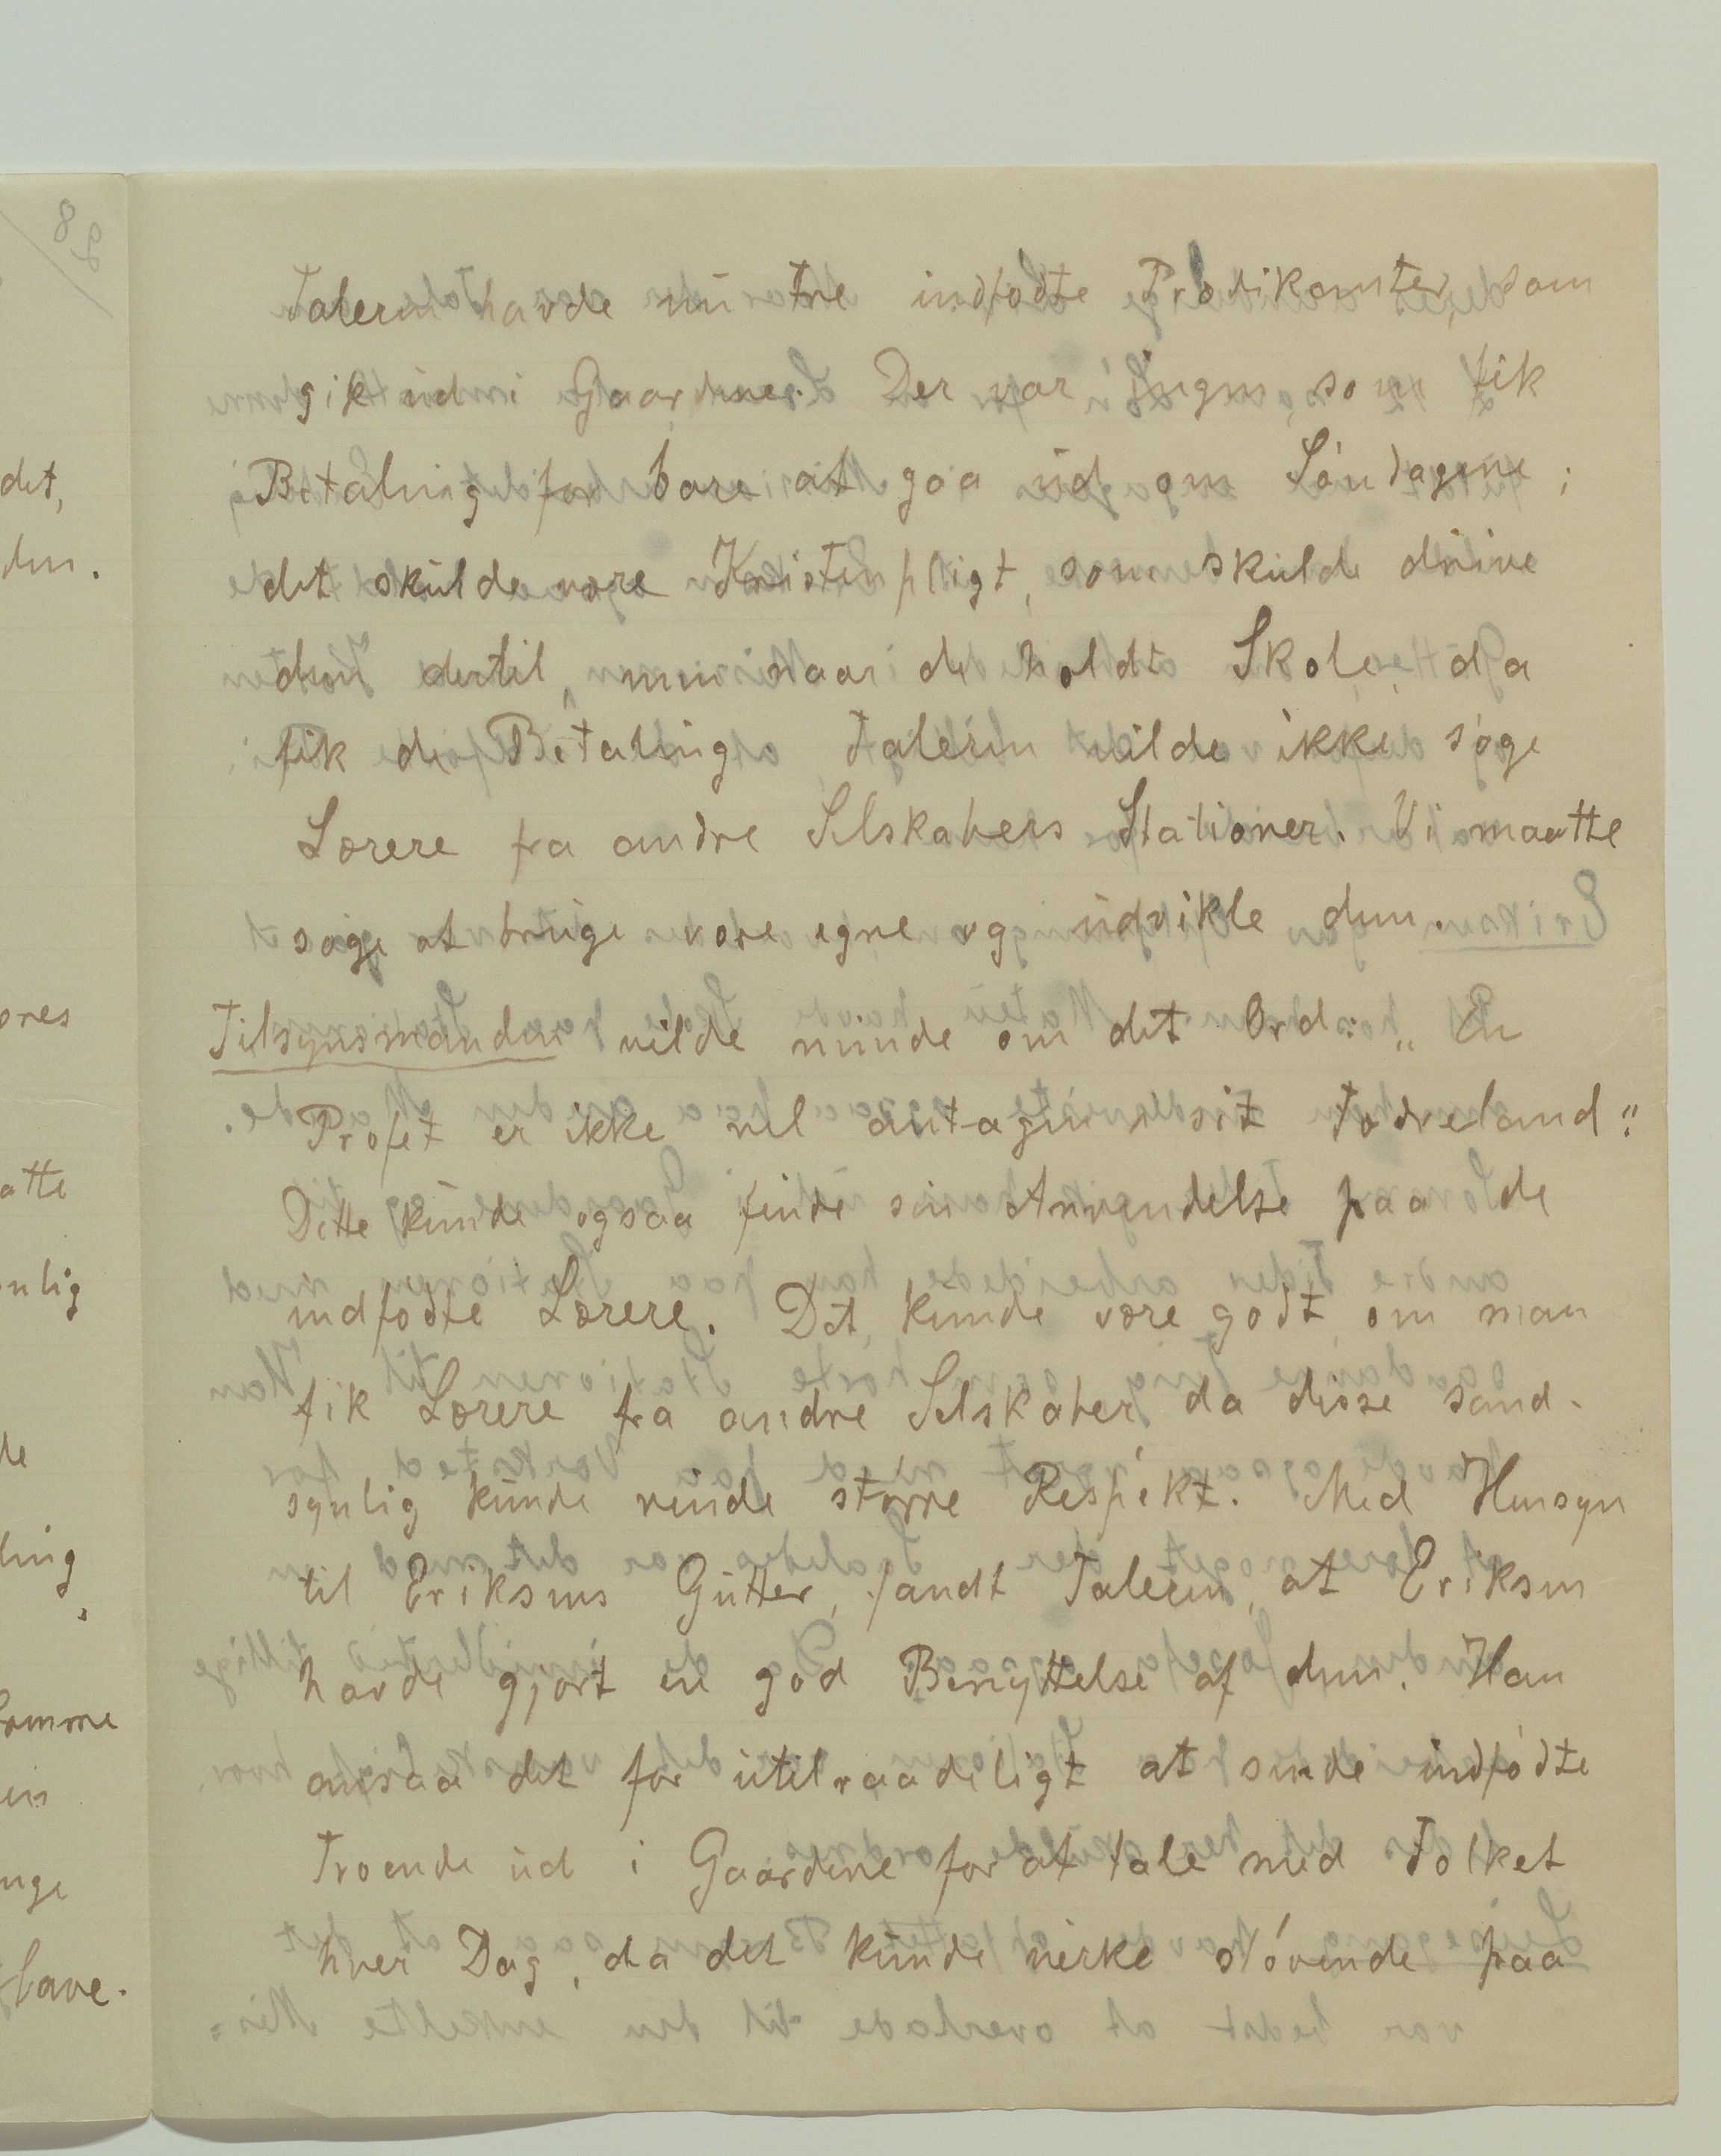 Taleren havde nu tre indfødte Prædikanter, som
gik ud i Gaardene. Der var ingen, som fik
Betaling for bare at gaa ud om Søndagene;
det skulde være Kristenpligt, som skulde drive
dem dertil, men naar de holdt Skole, da
fik de Betaling. Taleren vilde ikke søge
Lærere fra andre Selskabers Stationer. Vi maatte
søge at bruge vore egne og udvikle dem.
Tilsynsmanden vilde minde om det Ord: „En
Profet er ikke vel antagen i sit Fædreland".
Dette kunde ogsaa finde sin Anvendelse paa de
indfødte Lærere. Det kunde være godt, om man
fik Lærere fra andre Selskaber, da disse sand-
synlig kunde vinde større Respekt. Med Hensyn
til Eriksens Gutter, fandt Taleren, at Eriksen
havde gjort en god Benyttelse af dem. Han
ansaa det for utilraadeligt at sende indfødte
Troende ud i Gaardene for at tale med Folket
hver Dag, da det kunde virke sløvende paa
det,
den.
ores
atte
nlig
de
ling
omme
en
nge
lave.